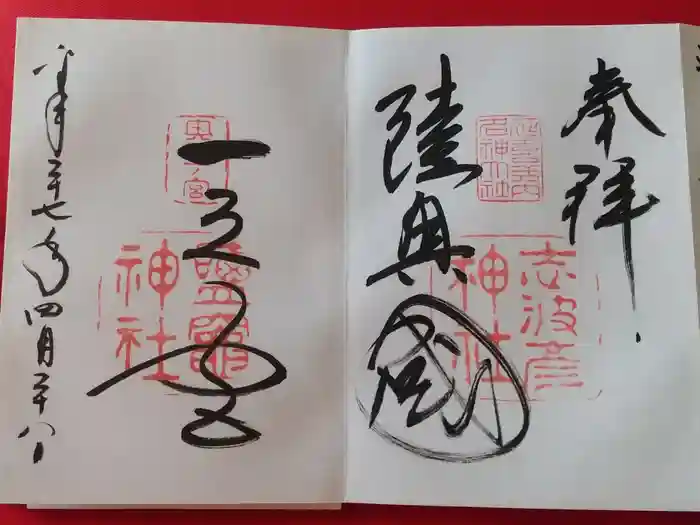 奉拝
延喜式内
名神大社
志波彦
神社
陸奥國
奥一宮
一之宮
鹽竈
神社
平成二十七年四月二十八日